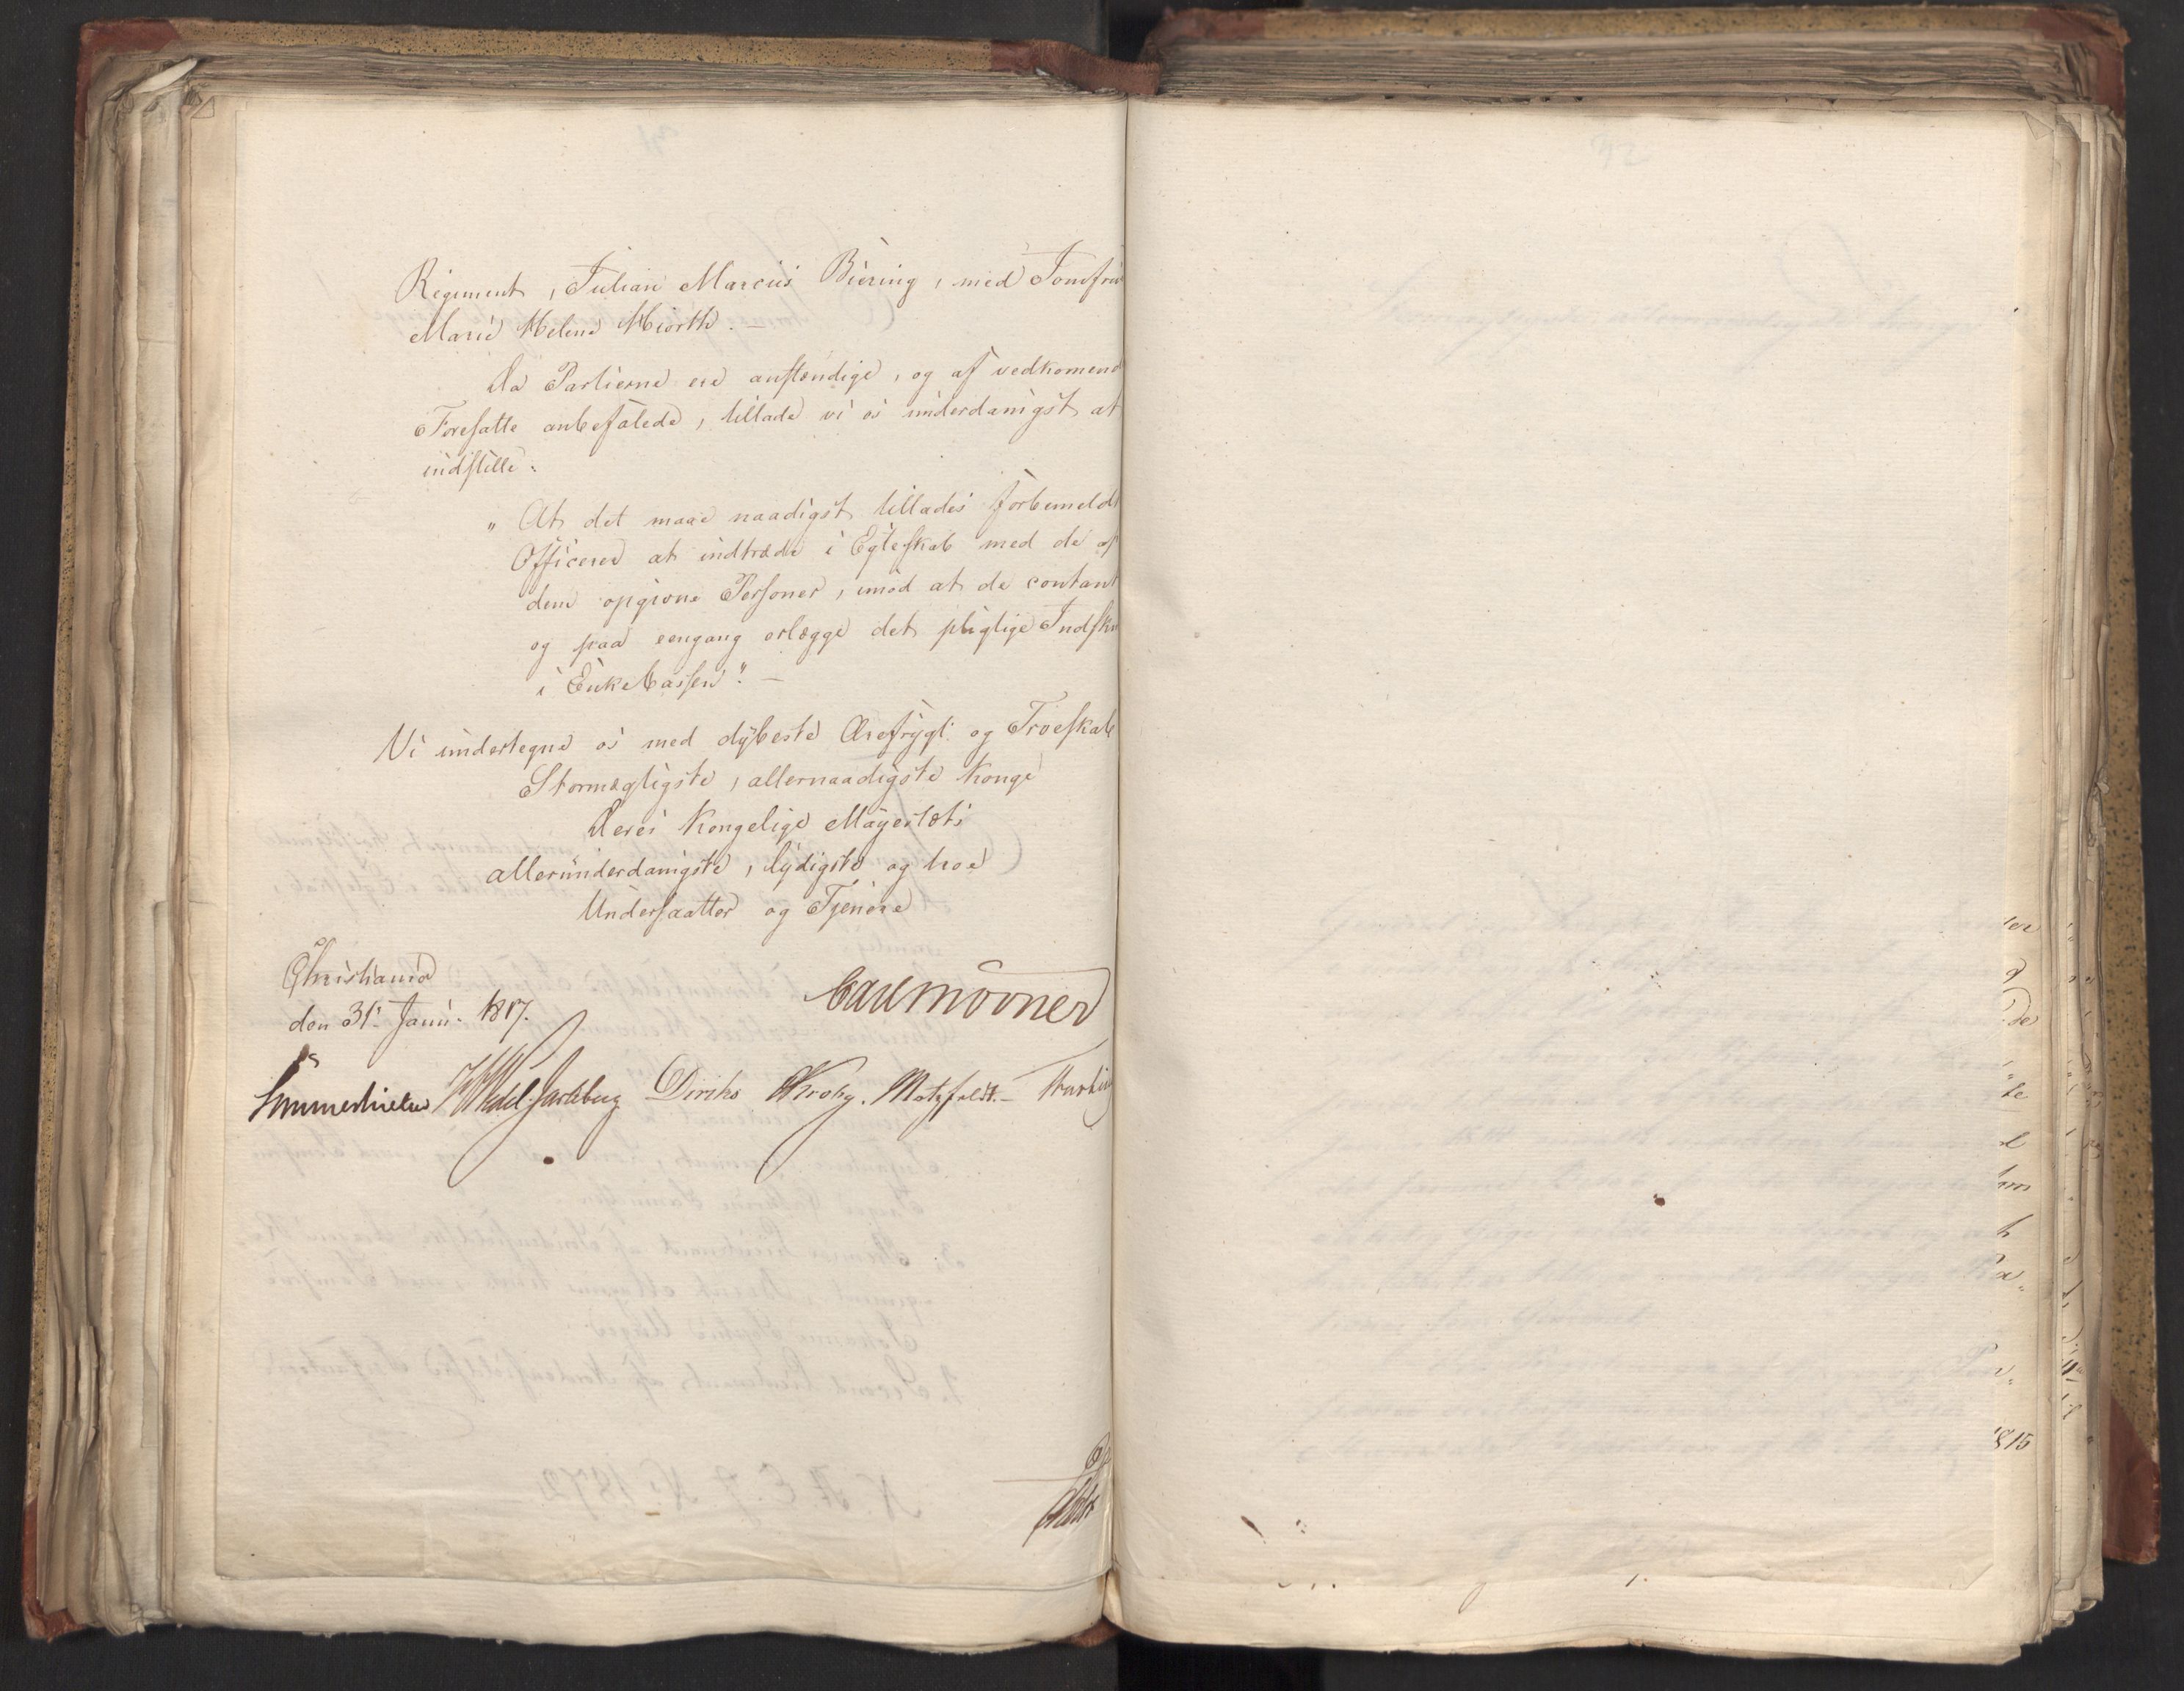 Regiment, Julian Marcus Biering, med Jomfrue
Marie Helene Hiorth. —
Da Partierne ere anstændige, og af vedkomend
Foresatte anbefalede, tillade vi os underdanigst at
indstille:
„At det maae naadigst tillades forbemeldt
Officerer at indtræde i Egteskab med de af
dem opgivne Personer, imod at de contant
og paa eengang erlægge det pligtige Indsku
i Enke Cassen". —
Vi undertegne os med dybeste Ærefrygt og Troeskab
Stormægtigste, allernaadigste Konge
Deres Kongelige Mayestæts
allerunderdanigste, lydigste og troe
Undersaatter og Tjenere
Christiania
den 31te Janu. 1817.
Carl Mörner
Sommerhielm Wedel-Jarlsberg Diriks Krohg. Motzfeldt. —
1815